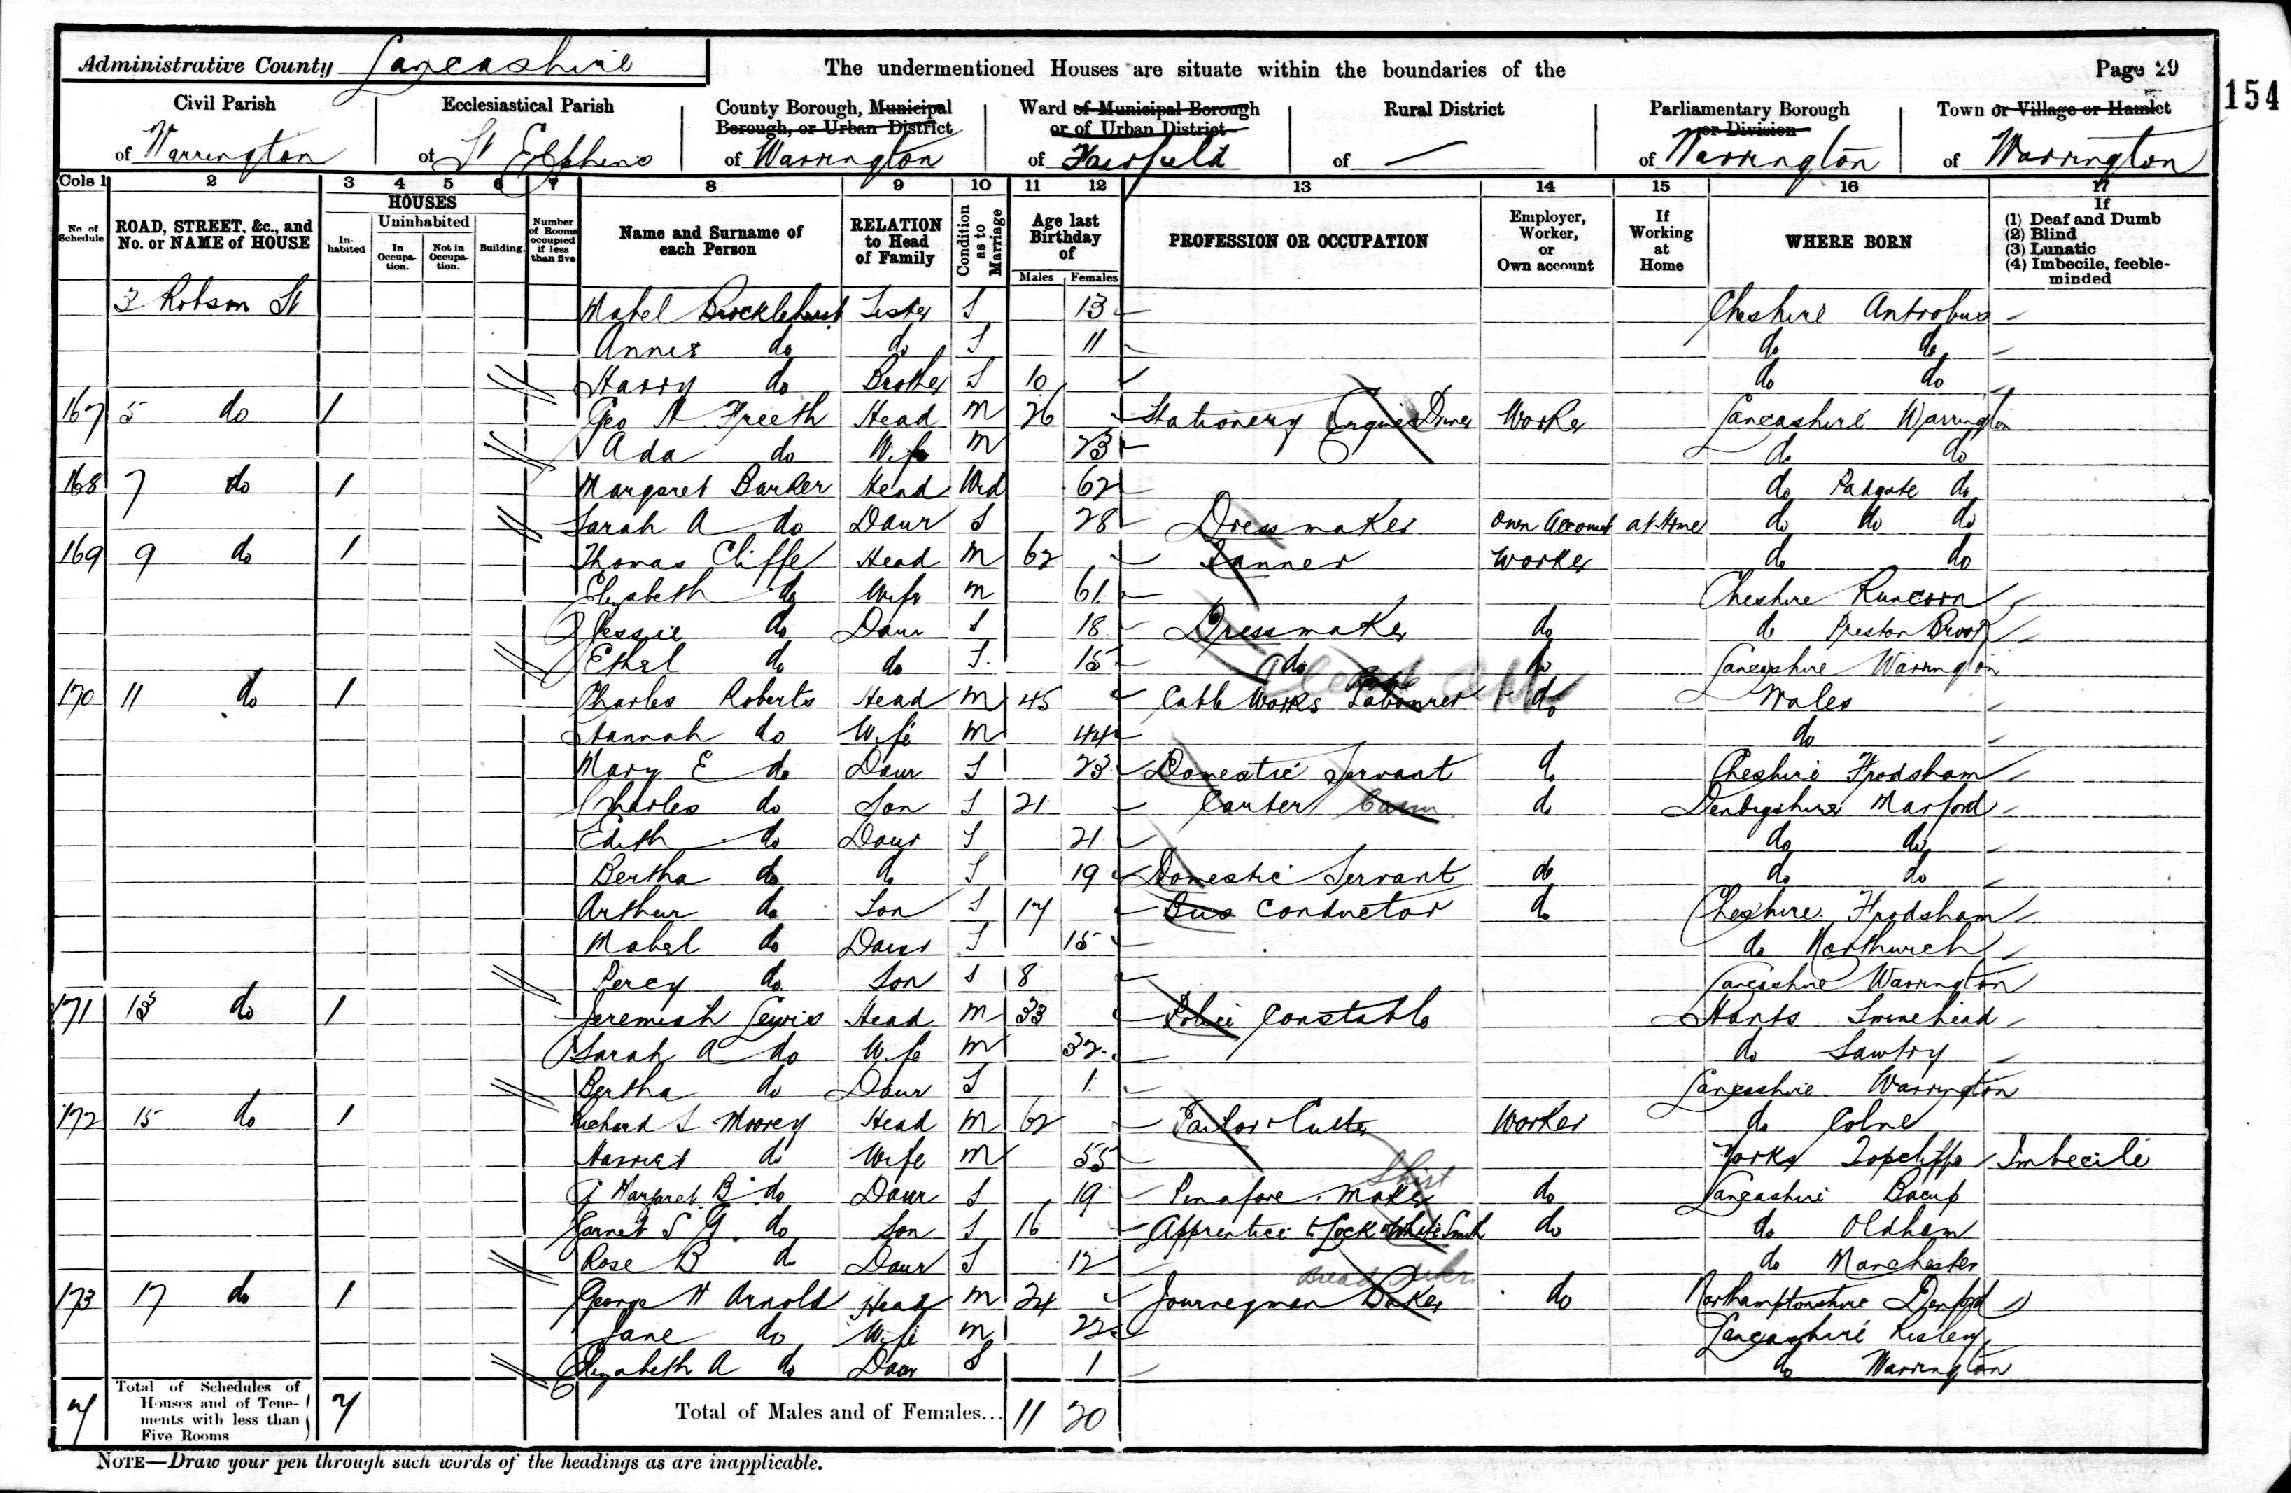 Administrative County Lancashire
The undermentioned Houses are situate within the boundaries of the
Page 29
154
Civil Parish of Warrington
Ecclesiastical Parish of St Elphins
County Borough, Municipal Borough, or Urban District of Warrington
Ward of Municipal Borough or of Urban District of Fairfield
Rural District of —
Parliamentary Borough or Division of Warrington
Town or Village or Hamlet of Warrington
Cols 1 2 3 4 5 6 7 8 9 10 11 12 13 14 15 16 17
No. of Schedule
ROAD, STREET, &c., and No. or NAME of HOUSE
HOUSES
Inhabited
Uninhabited
In Occupation.
Not in Occupation.
Building
Number of Rooms occupied if less than five
Name and Surname of each Person
RELATION to Head of Family
Condition as to Marriage
Age last Birthday of
Males Females
PROFESSION OR OCCUPATION
Employer, Worker, or Own account
If Working at Home
WHERE BORN
If
(1) Deaf and Dumb
(2) Blind
(3) Lunatic
(4) Imbecile, feeble-minded
3 Robson St Mabel Brocklehurst Sister S 13 Cheshire Antrobus
Annis do do S 11 do do
Harry do Brother S 10 do do
167 5 do 1 Geo H Freeth Head M 26 Stationery Engine Driver Worker Lancashire Warrington
Ada do Wife M 23 do do
168 7 do 1 Margaret Barker Head Wid 62 do Padgate do
Sarah A do Daur S 28 Dressmaker Own Account at Home do do do
169 9 do 1 Thomas Cliffe Head M 62 Tanner Worker do do
Elizabeth do Wife M 61 Cheshire Runcorn
Jessie do Daur S 18 Dressmaker do do Preston Brook
Ethel do do S 15 do do Lancashire Warrington
170 11 do 1 Charles Roberts Head M 45 Cable Works Labourer do Wales
Hannah do Wife M 44 do
Mary E do Daur S 23 Domestic Servant do Cheshire Frodsham
Charles do Son S 21 Carter do Denbigshire Marford
Edith do Daur S 21 do do
Bertha do do S 19 Domestic Servant do do do
Arthur do Son S 17 Bus Conductor do Cheshire Frodsham
Mabel do Daur S 15 do Northwich
Percy do Son S 8 Lancashire Warrington
171 13 do 1 Jeremiah Lewis Head M 33 Police Constable Hants Swinehead
Sarah A do Wife M 32 do Sawtry
Bertha do Daur S 1 Lancashire Warrington
172 15 do 1 Richard S Moorey Head M 62 Tailor Cutter Worker do Colne
Harriet do Wife M 55 Yorks Topcliffe Imbecile
Margaret B do Daur S 19 Pinafore Maker Shirt do Lancashire Bacup
Garnet S G do Son S 16 Apprentice to Lock & White Smith do do Oldham
Rose B do Daur S 12 do Manchester
173 17 do 1 George H Arnold Head M 24 Journeyman Baker Bread do Northamptonshire Denford
Jane do Wife M 22 Lancashire Risley
Elizabeth A do Daur S 1 do Warrington
7 Total of Schedules of Houses and of Tenements with less than Five Rooms 7 Total of Males and of Females... 11 20
NOTE—Draw your pen through such words of the headings as are inapplicable.